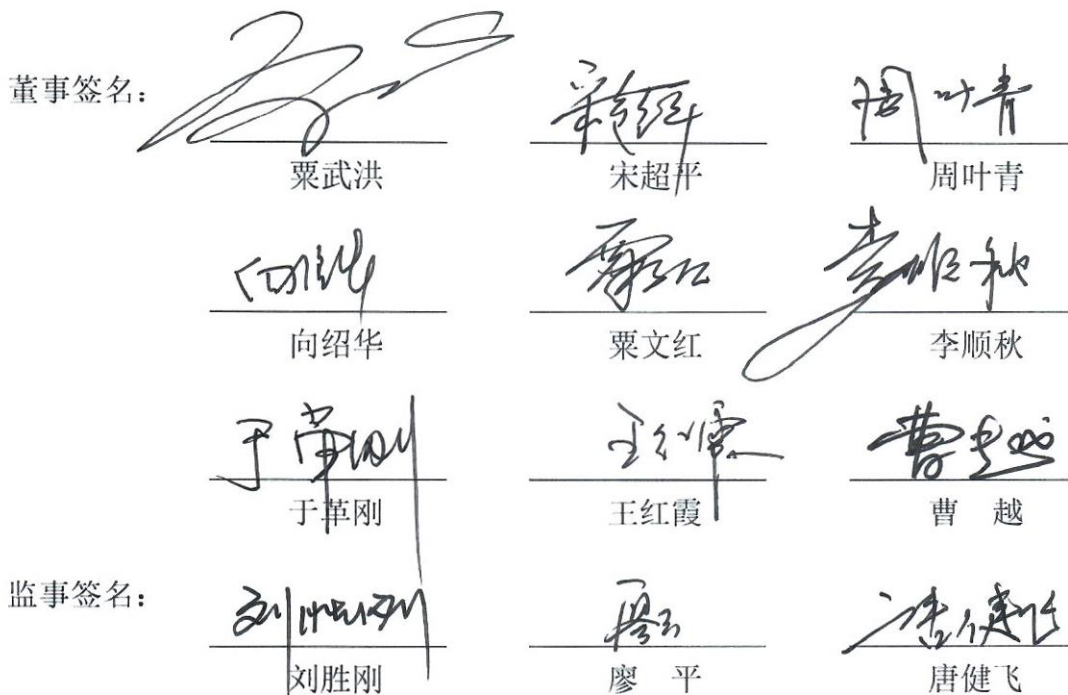 董事签名：
粟武洪 宋超平 周叶青
向绍华 粟文红 李顺秋
于革刚 王红霞 曹 越
监事签名：
刘胜刚 廖 平 唐健飞